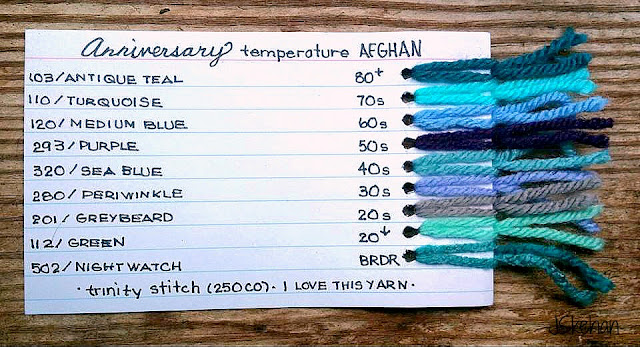 Anniversary temperature AFGHAN
103/ANTIQUE TEAL 80+
110/TURQUOISE 70s
120/MEDIUM BLUE 60s
293/PURPLE 50s
320/SEA BLUE 40s
280/PERIWINKLE 30s
201/GREYBEARD 20s
112/GREEN 20↓
502/NIGHTWATCH BRDR
·trinity stitch (250CO)· I LOVE THIS YARN·